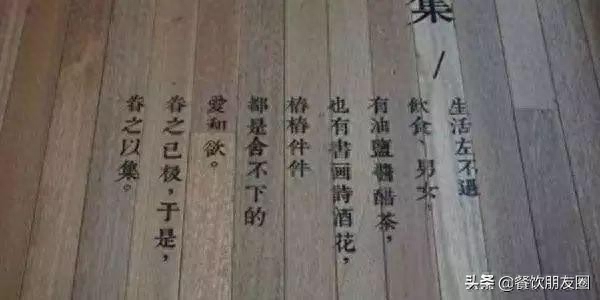 集/
生活左不過
飲食、男女，
有油鹽醬醋茶，
也有書画詩酒花，
樁樁件件
都是舍不下的
愛和欲。
眷之已极，于是，
眷之以集。
头条 @餐饮朋友圈